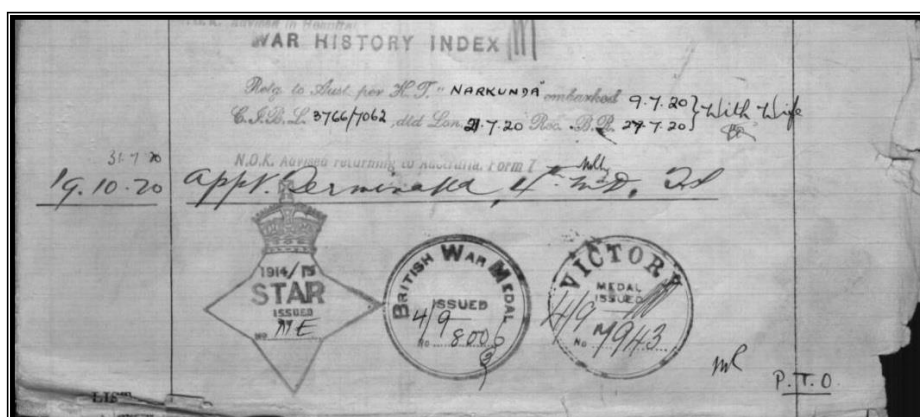 N.O.K. Advised in Hospital
WAR HISTORY INDEX
Retg. to Aust. per H.T. "NARKUNDA" embarked 9.7.20 } With Wife
C.I.B.L. 3766/7062, dtd Lon. 21.7.20 Rec. B.R. 27.7.20
31.7.20
N.O.K. Advised returning to Australia. Form 1
19.10.20 Appt. Terminated, 4th M.D.
1914/15
STAR
ISSUED
NO
BRITISH WAR MEDAL
ISSUED
4/9
No 8006
VICTORY
MEDAL
ISSUED
4/9
No 7943
P.T.O.